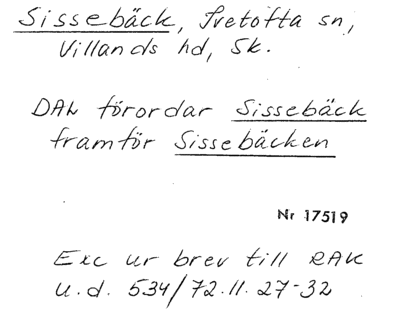 Sissebäck, Ivetofta sn,
Villands hd, Sk.
DAL förordar Sissebäck
framför Sissebäcken
Nr 17519
Exc ur brev till RAK
u.d. 534/72.11.27-32